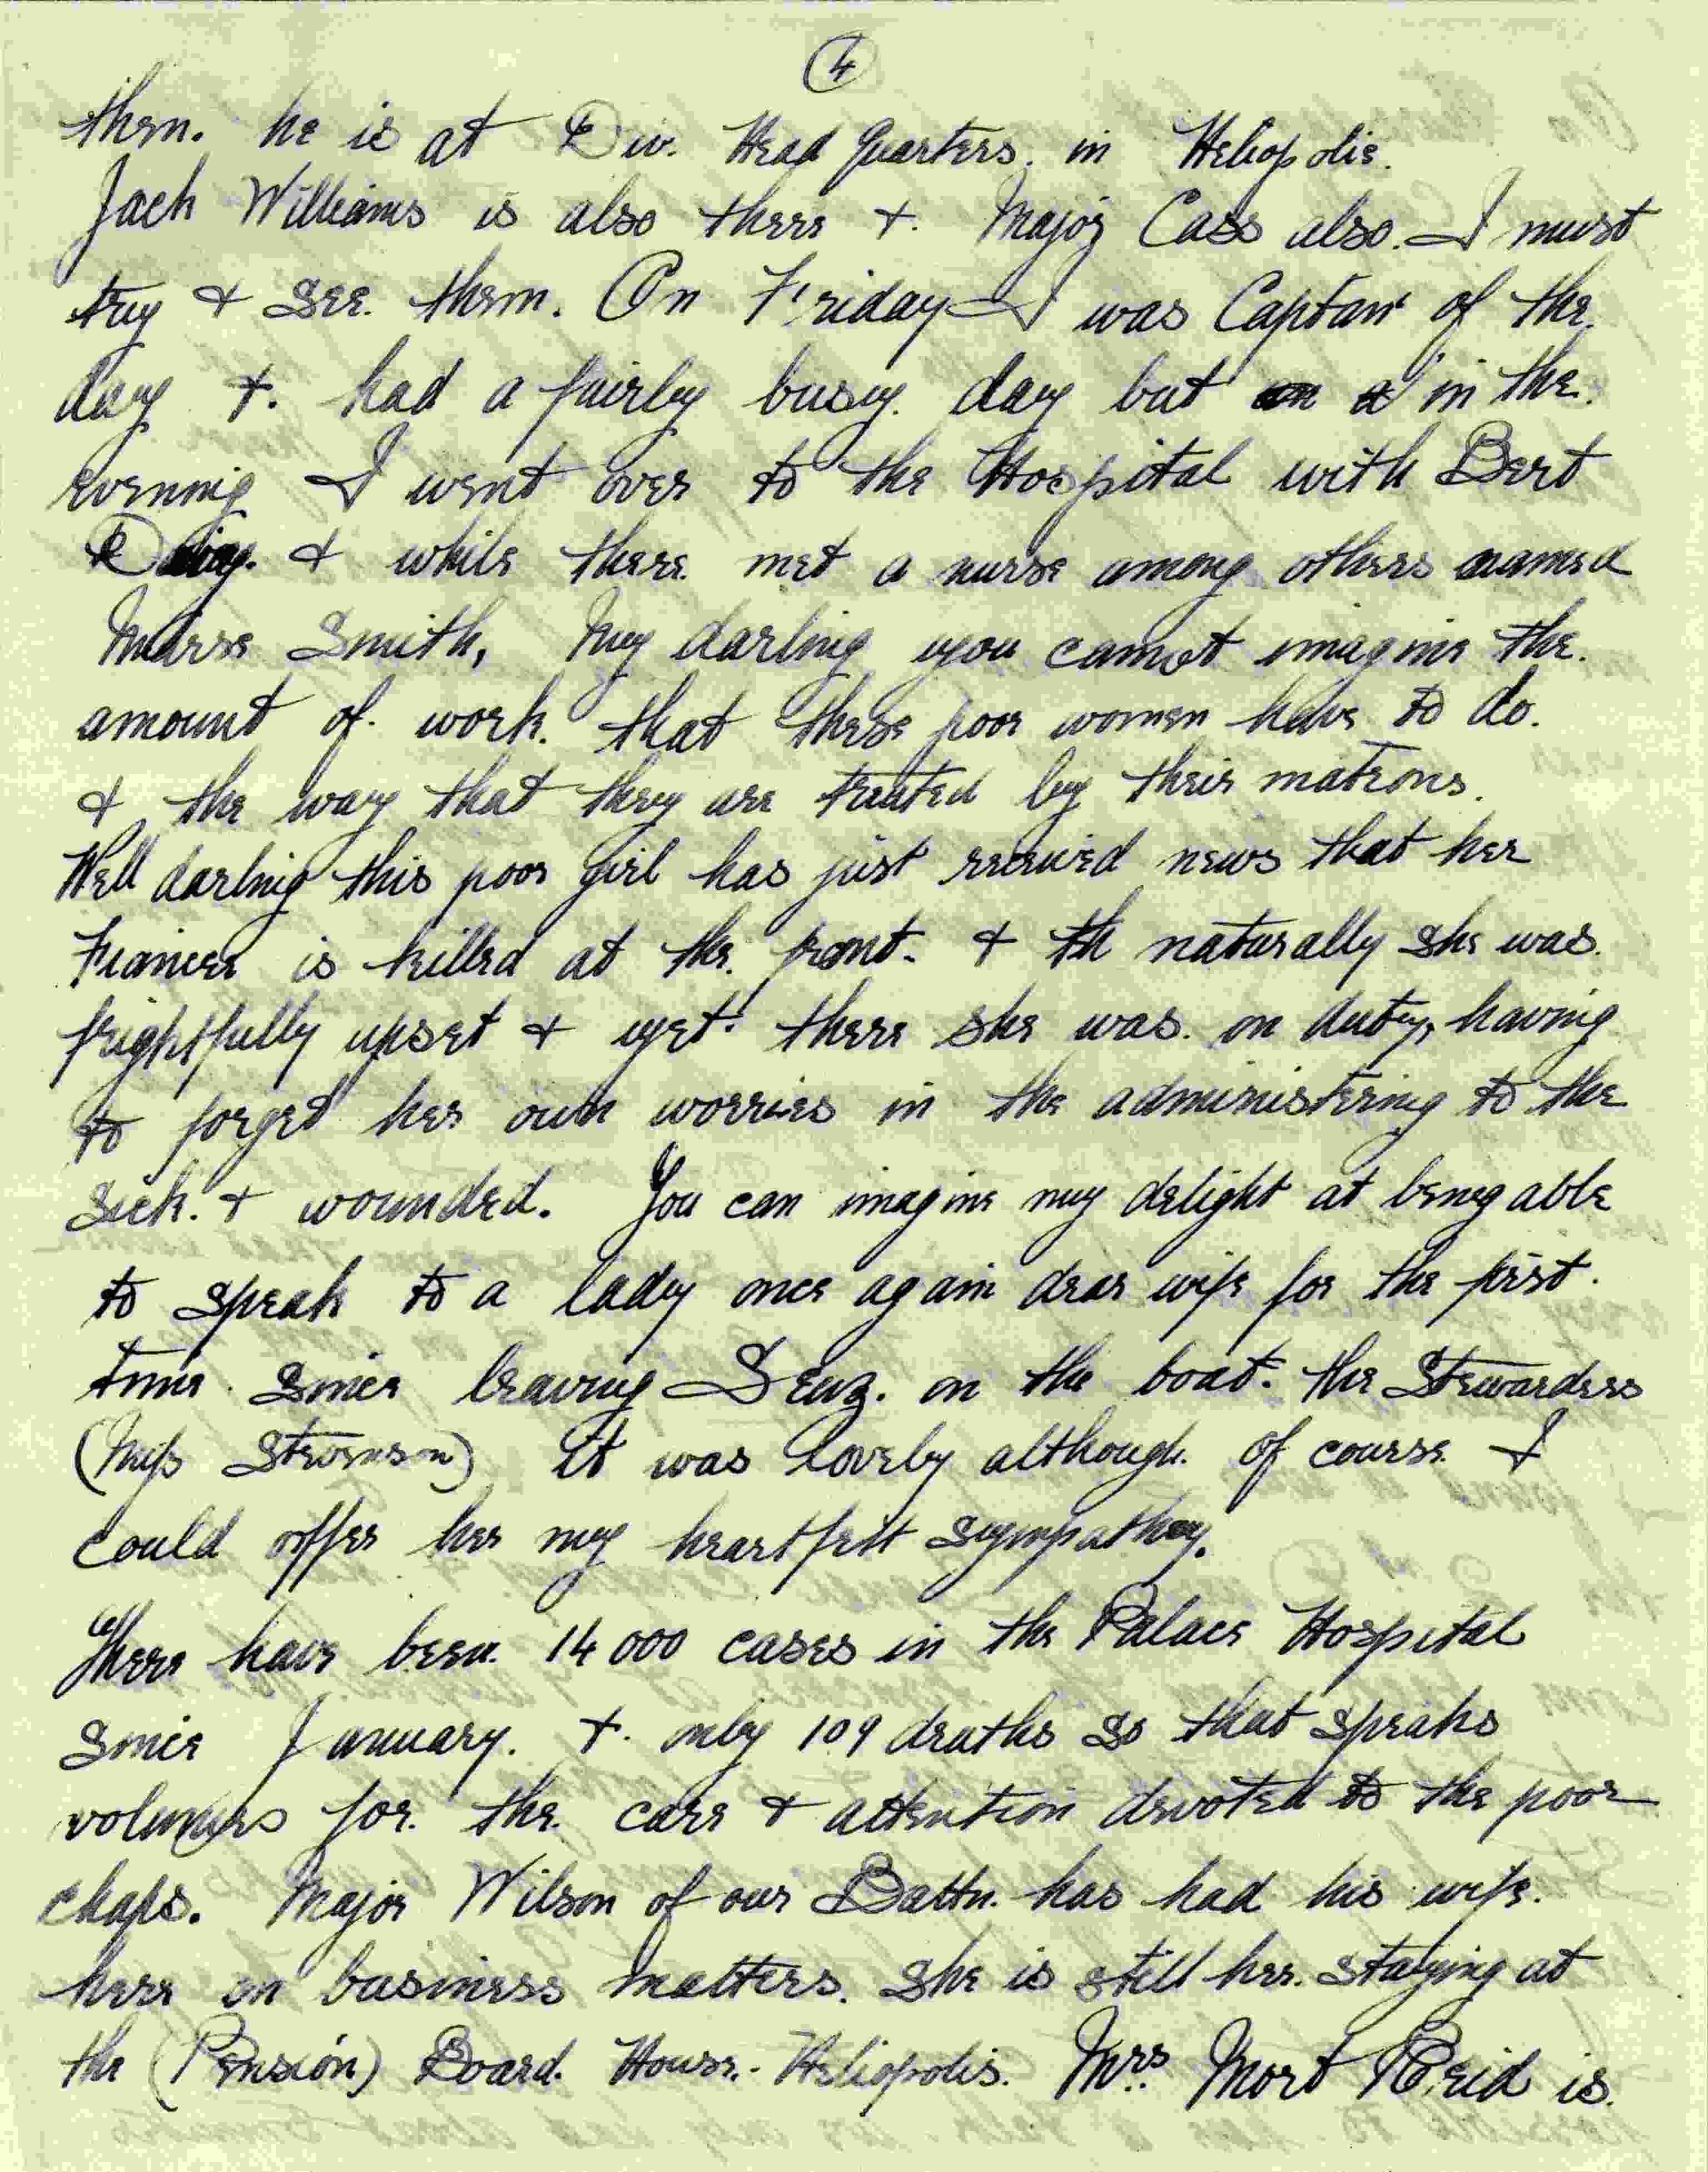 4
them. he is at Div. Head Quarters. in Heliopolis.
Jack Williams is also there +. Major Cass also. I must
try + see. them. On Friday I was Captain of the.
day +. had a fairly busy. day but in the.
evening I went over to the Hospital with Bert
+ while there. met a nurse among others named
Nurse Smith, My darling you cannot imagine the.
amount of. work. that these poor women have to do.
+ the way that they are treated by their matrons.
Well darling this poor girl has just received news that her
Fiancee is killed at the. front. + th naturally she was.
frightfully upset + yet. there she was. on duty, having
to forget her own worries in the administering to the
sick. + wounded. You can imagine my delight at being able
to speak to a lady once again dear wife for the first.
time. since leaving Suez. on the boat. the Stewardess
(Miss) It was lovely although. of course. I
could offer her my heartfelt sympathy.
There have been. 14 000 cases in the Palace Hospital
since January. +. only 109 deaths so that speaks
volumes for. the. care + attention devoted to the poor
chaps. Major Wilson of our Battn. has had his wife.
here on business matters. She is still her. staying at
the (Pension) Board. House.- Heliopolis. Mrs. Mort Reid is.